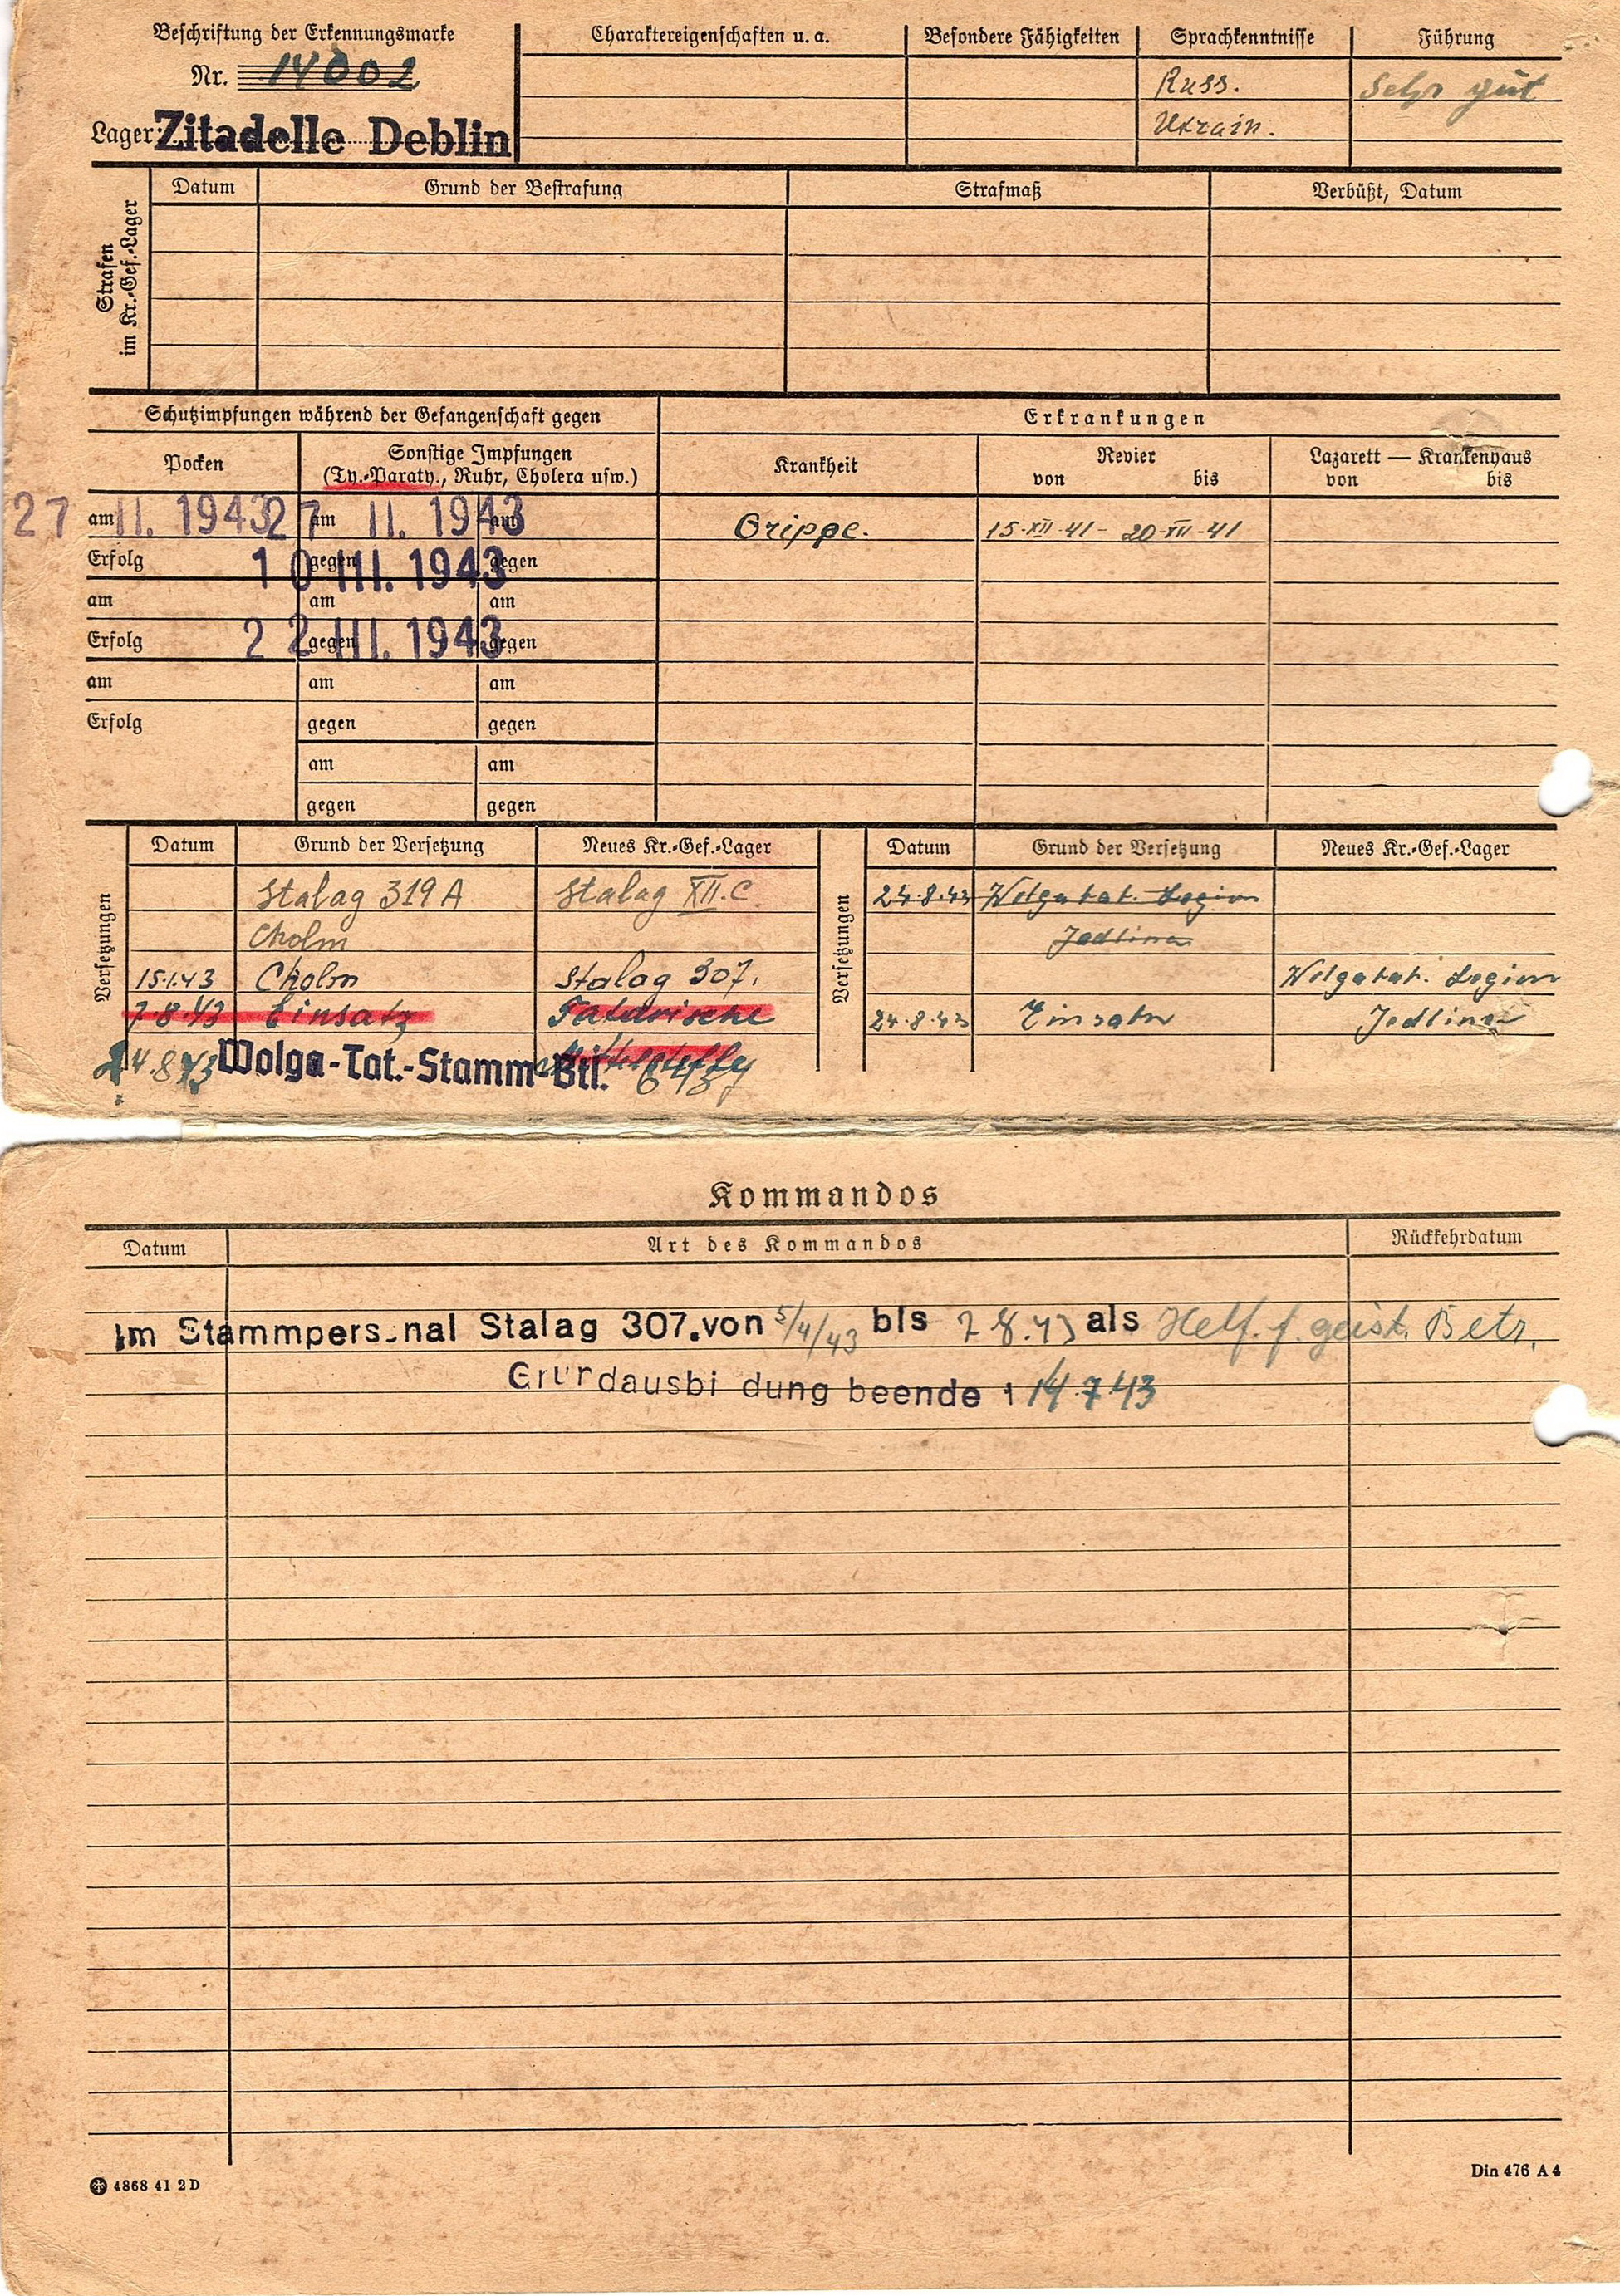 Beschriftung der Erkennungsmarke
Nr. 14002
Lager: Zitadelle Deblin
Charaktereigenschaften u. a.
Besondere Fähigkeiten
Sprachkenntnisse
Russ.
Ukrain.
Führung
Sehr gut
Strafen im Kr.-Gef.-Lager
Datum Grund der Bestrafung Strafmaß Verbüßt, Datum
Schutzimpfungen während der Gefangenschaft gegen
Pocken
Sonstige Impfungen
(Ty.-Paraty., Ruhr, Cholera usw.)
27 am II. 1943 27 am II. 1943 am
Erfolg 10 gegen III. 1943 gegen
am am am
Erfolg 22 gegen III. 1943 gegen
am am am
Erfolg gegen gegen
am am
gegen gegen
Erkrankungen
Krankheit
Revier
von bis
Lazarett — Krankenhaus
von bis
Grippe. 15·XII·41 - 20·XII·41
Versetzungen
Datum Grund der Versetzung Neues Kr.-Gef.-Lager
Stalag 319 A Stalag XII.C
Cholm
15.1.43 Cholm Stalag 307.
7.8.43 Einsatz Tatarische
24.8.43 Wolga-Tat.-Stamm-Btl.
Versetzungen
Datum Grund der Versetzung Neues Kr.-Gef.-Lager
24.8.43 Wolgatat. Legion
Jedlina
Wolgatat. Legion
24.8.43 Einsatz Jedlina
Kommandos
Datum Art des Kommandos Rückkehrdatum
Im Stammpers.nal Stalag 307.von 5/4/43 bis 7.8.43 als Helf. f. geist. Betr.
Grundausbi dung beende t 14.7.43
4868 41 2 D
Din 476 A 4